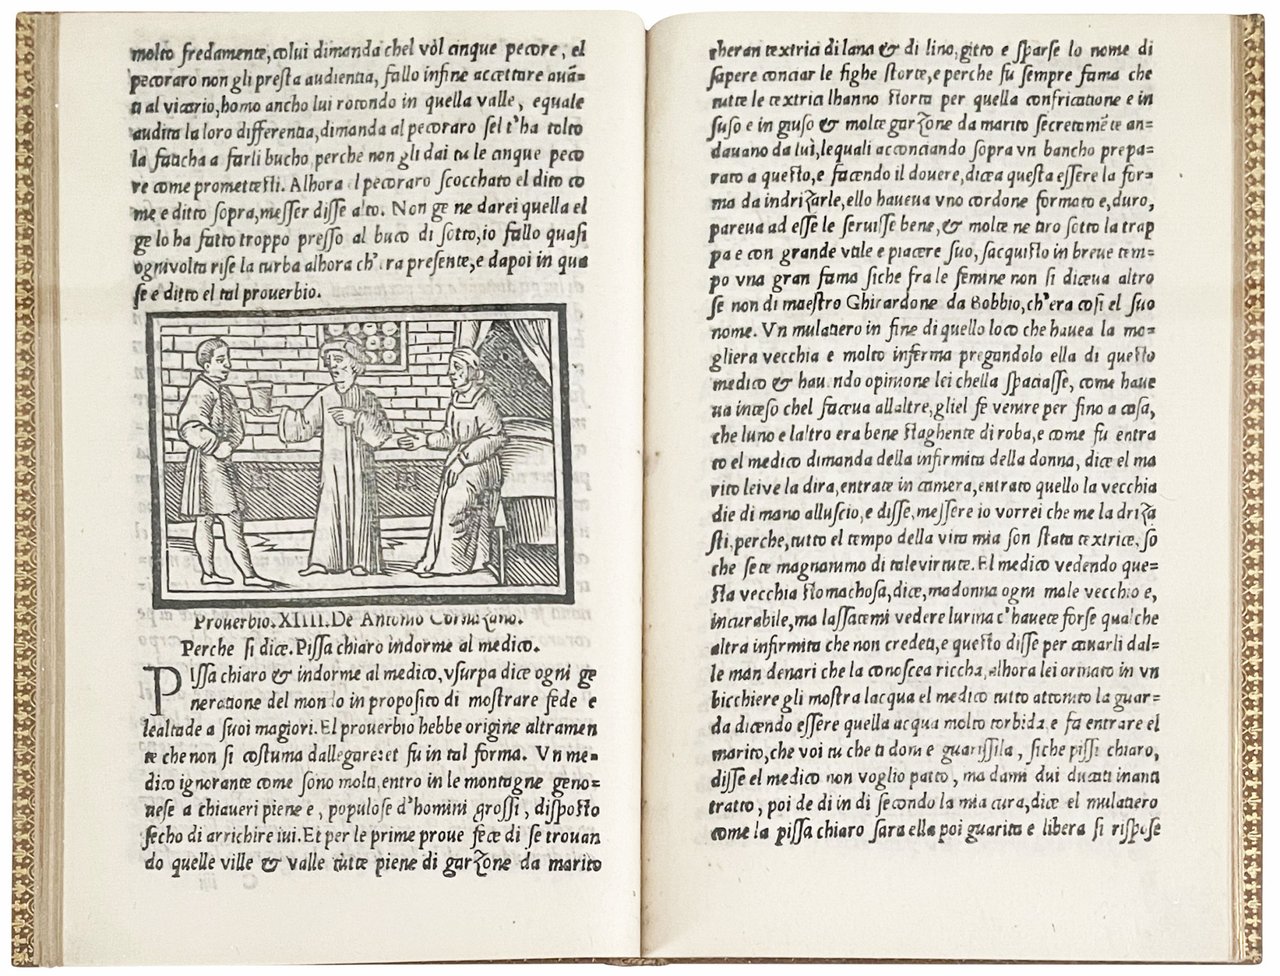 molto fredamente,colui dimanda chel vol cinque pecore, el
pecoraro non gli presta audientia, fallo infine accettare auã=
ti al vicario,homo ancho lui rotondo in quella valle, equale
audita la loro differentia,dimanda al pecoraro sel t'ha tolto
la faticha a farli bucho,perche non gli dai tu le cinque peco
re come promettesti. Alhora el pecoraro scocchato el dito co
me e ditto sopra,messer disse alto. Non ge ne darei quella el
ge lo ha fatto troppo presso al buco di sotto,io fallo quasi
ognivolta rise la turba alhora ch'era presente,e dapoi in qua
se e ditto el tal prouerbio.
Prouerbio.XIIII.De Antonio Cornazano.
Perche si dice.Pissa chiaro indorme al medico.
PIssa chiaro & indorme al medico,vsurpa dice ogni ge
neratione del mondo in proposito di mostrare fede e
lealtade a suoi magiori.El prouerbio hebbe origine altramen
te che non si costuma dallegare:et fu in tal forma. Vn me=
dico ignorante come sono molti,entro in le montagne geno=
uese a chiaueri piene e, populose d'homini grossi, disposto
secho di arrichire iui.Et per le prime proue fece di se trouan
do quelle ville & valle tutte piene di garzone da marito
cheran textrici di lana & di lino,gitto e sparse lo nome di
sapere conciar le fighe storte,e perche fu sempre fama che
tutte le textrici lhanno storta per quella confricatione e in
suso e in giuso & molte garzone da marito secretamẽte an=
dauano da lui,lequali acconciando sopra vn bancho prepa=
rato a questo,e facendo il douere,dicea questa essere la for=
ma da indrizarle,ello haueua vno cordone formato e,duro,
pareua ad esse le seruisse bene,& molte ne tiro sotto la trap
pa e con grande vtile e piacere suo, sacquisto in breue tem=
po vna gran fama siche fra le femine non si diceua altro
se non di maestro Ghirardone da Bobbio,ch'era cosi el suo
nome. Vn mulatiero in fine di quello loco che hauea la mo=
gliera vecchia e molto inferma pregandolo ella di questo
medico & hauendo opinione lei chella spaciasse, come haue
ua inteso chel faceua allaltre,gliel fe venire per fino a casa,
che luno e laltro era bene staghente di roba,e come fu entra
to el medico dimanda della infirmita della donna, dice el ma
rito leive la dira,entrate in camera,entrato quello la vecchia
die di mano alluscio,e disse,messere io vorrei che me la driza
sti,perche,tutto el tempo della vita mia son stata textrice,so
che sete magnanimo di tale virtute. El medico vedendo que=
sta vecchia stomachosa,dice,madonna ogni male vecchio e,
incurabile,ma lassatemi vedere lurina c'hauete forse qualche
altra infirmita che non credeti,e questo disse per cauarli dal=
le man denari che la conoscea riccha,alhora lei orinato in vn
bicchiere gli mostra lacqua el medico tutto attonito la guar=
da dicendo essere quella acqua molto torbida e fa entrare el
marito,che voi tu che ti doni e guarissila , siche pissi chiaro,
disse el medico non voglio patto, ma dami dui ducati inanti
tratto, poi de di in di secondo la mia cura,dice el mulatiero
come la pissa chiaro sara ella poi guarita e libera si rispose